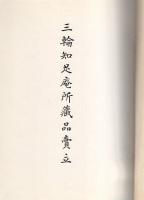 三輪知足庵所藏品賣立